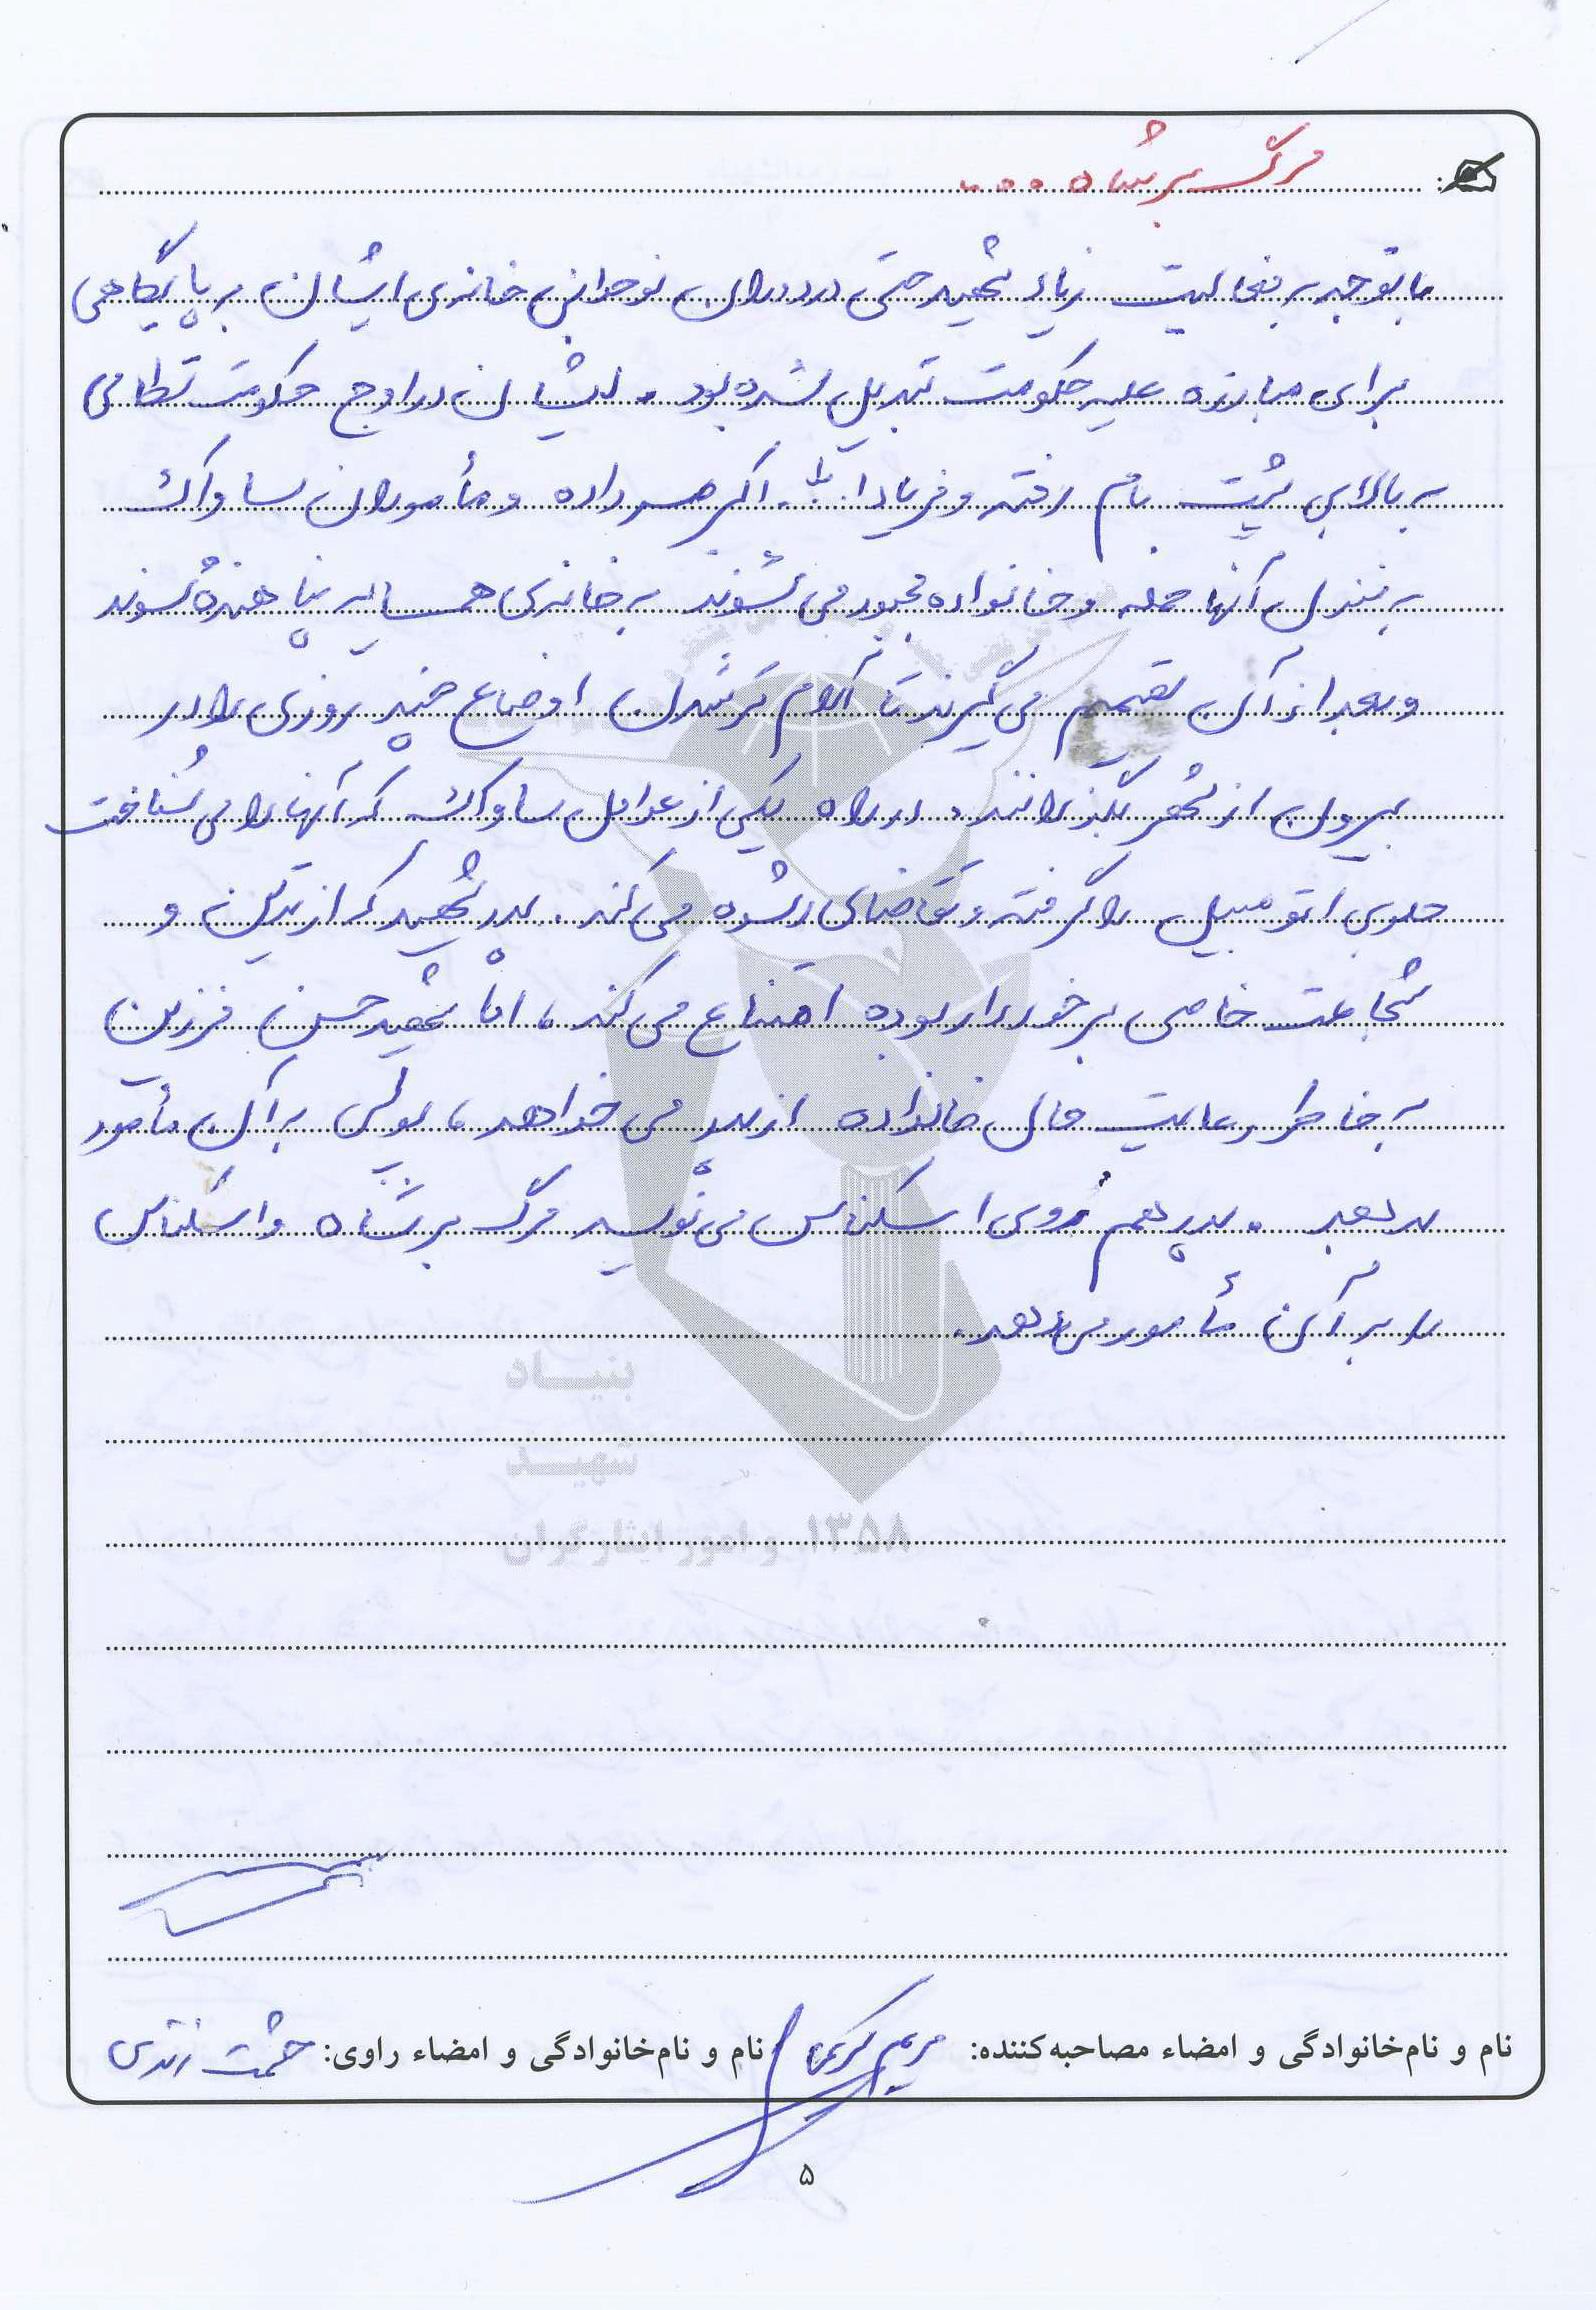 مرگ بر شاه ...
با توجه به فعالیت زیاد شهید حتی در دوران نوجوانی خانه‌ی ایشان به پایگاهی
برای مبارزه علیه حکومت تبدیل شده بود. ایشان در اوج حکومت نظامی
به بالای پشت بام رفته و فریاد ا... اکبر سر داده و مأموران ساواک
به منزل آنها حمله و خانواده مجبور می شوند به خانه‌ی همسایه پناهنده شوند
و بعد از آن تصمیم می گیرند تا آرام تر شدن اوضاع چند روزی را در
بیرون از شهر بگذرانند. در راه یکی از عوامل ساواک که آنها را می شناخت
جلوی اتومبیل را گرفته و تقاضای رشوه می کند. پدر شهید که از تدین و
شجاعت خاصی برخوردار بوده امتناع می کند، اما شهید حسن فرزین
به خاطر رعایت حال خانواده از پدر می خواهد، پولی به آن مأمور
بدهد. پدر هم روی اسکناس می نویسد مرگ بر شاه و اسکناس
را به آن مأمور می دهد.
بنیاد
شهید
و امور ایثارگران ۱۳۵۸
نام و نام‌خانوادگی و امضاء مصاحبه‌کننده: مریم نام و نام‌خانوادگی و امضاء راوی: حشمت
۵